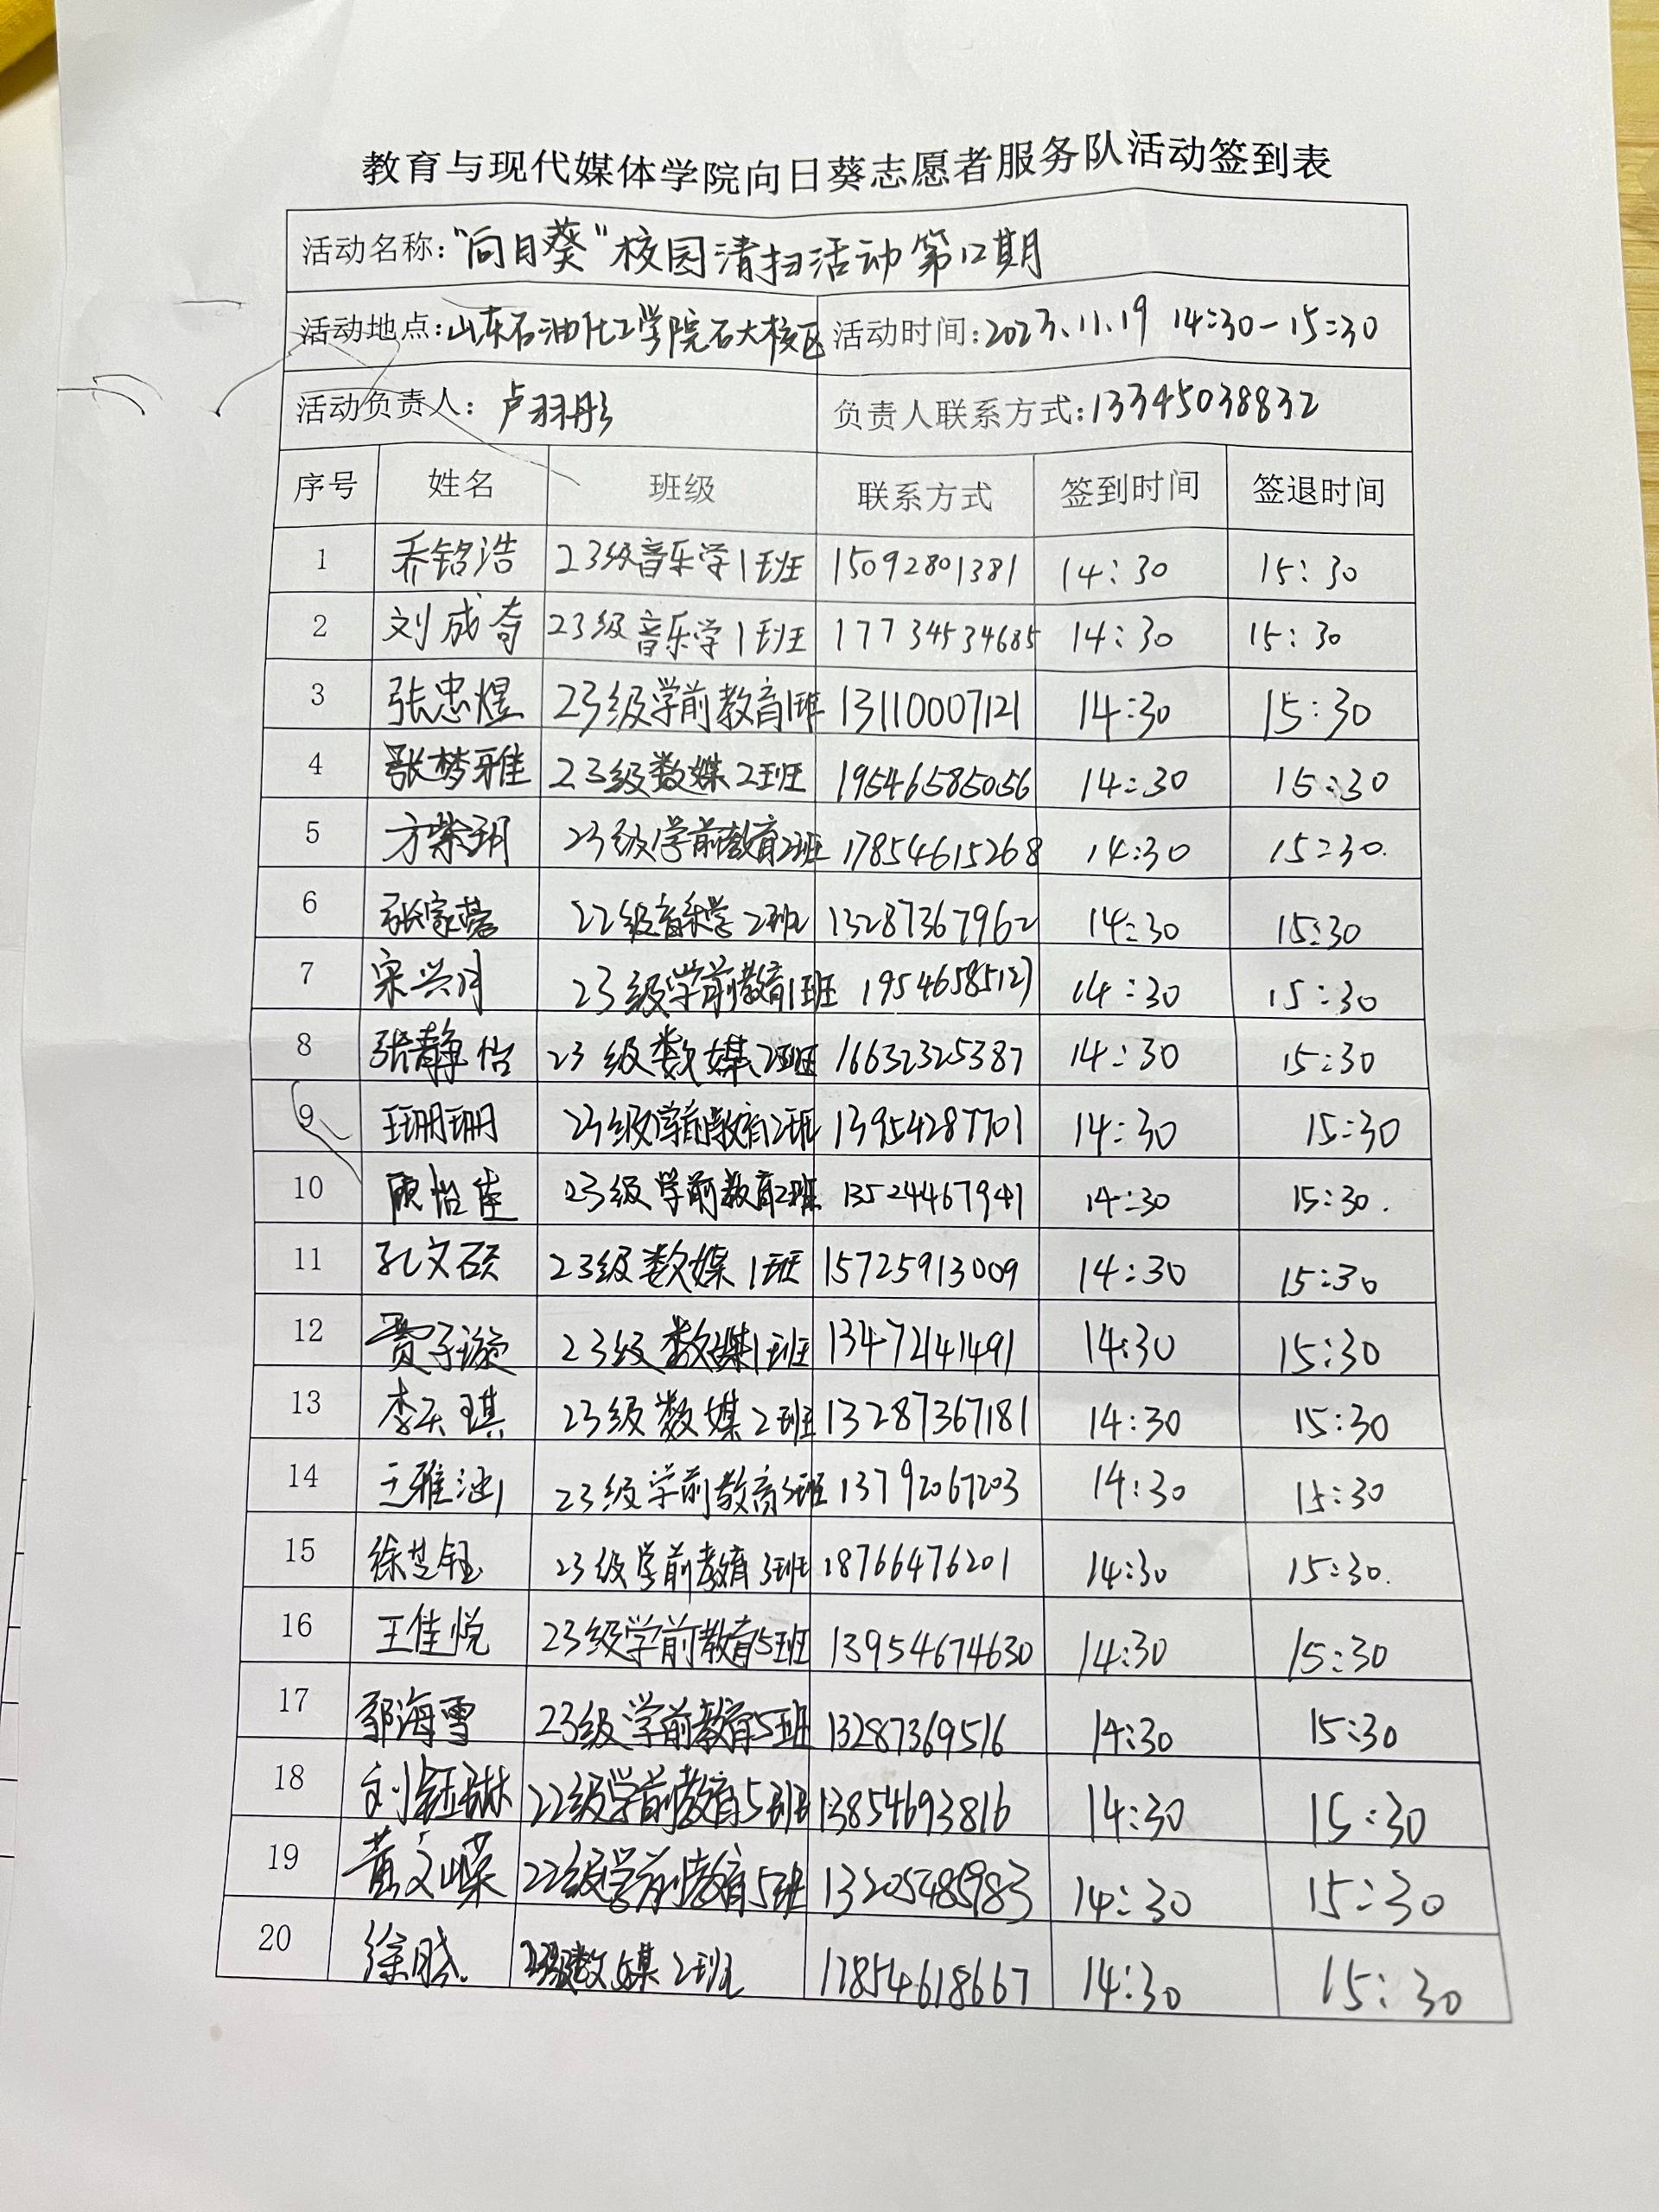 教育与现代媒体学院向日葵志愿者服务队活动签到表
活动名称:"向日葵"校园清扫活动第12期
活动地点:山东石油化工学院石大校区 活动时间:2023.11.19 14:30-15:30
活动负责人: 卢羽彤 负责人联系方式:13345038832
序号 姓名 班级 联系方式 签到时间 签退时间
1 乔铭浩 23级音乐学1班 15092801381 14:30 15:30
2 刘成奇 23级音乐学1班 17734534685 14:30 15:30
3 张忠煜 23级学前教育1班 13110007121 14:30 15:30
4 张梦雅 23级数媒2班 19546585056 14:30 15:30
5 方紫玥 23级学前教育2班 17854615268 14:30 15:30.
6 张家蓉 22级音乐学2班 13287367962 14:30 15:30
7 宋兴月 23级学前教育1班 19546585127 14:30 15:30
8 张静怡 23级数媒2班 16632325387 14:30 15:30
9 王珊珊 23级学前教育2班 13954287701 14:30 15:30
10 顾怡佳 23级学前教育2班 13524467941 14:30 15:30.
11 孔文硕 23级数媒1班 15725913009 14:30 15:30
12 贾子璇 23级数媒1班 13472141491 14:30 15:30
13 李天琪 23级数媒2班 13287367181 14:30 15:30
14 王雅涵 23级学前教育3班 13792067203 14:30 15:30
15 徐芝钰 23级学前教育3班 18766476201 14:30 15:30.
16 王佳悦 23级学前教育5班 13954674630 14:30 15:30
17 郭海雪 23级学前教育5班 13287369516 14:30 15:30
18 刘钰琳 22级学前教育5班 13854693816 14:30 15:30
19 黄文嵘 22级学前教育5班 13205485983 14:30 15:30
20 徐晓 数媒2班 17854618667 14:30 15:30